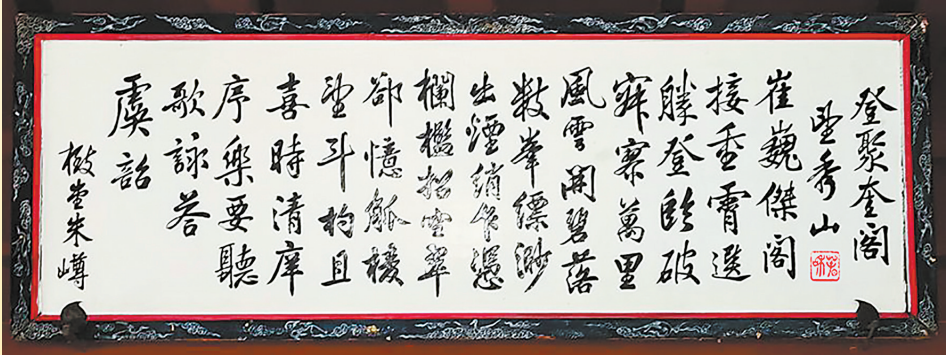 登聚奎閣
望秀山
崔巍傑閣
接重霄選
勝登臨破
寂寥萬里
風雲開碧落
數峯縹渺
出煙綃乍憑
欄檻招空翠
卻憶觚棱
望斗杓且
喜時清庠
序樂要聽
歌詠答
虞韶
堂朱嶟